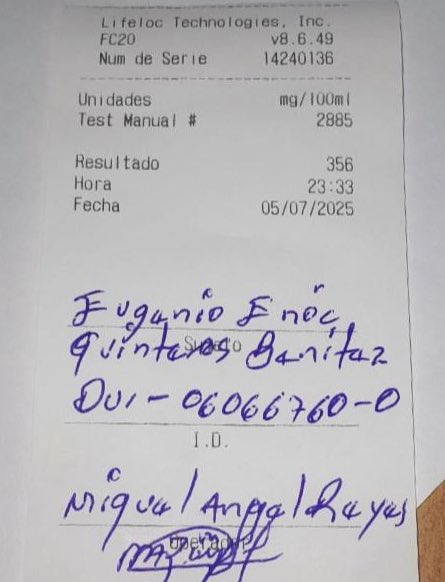 Lifeloc Technologies, Inc.
FC20 v8.6.49
Num de Serie 14240136
Unidades mg/100ml
Test Manual # 2885
Resultado 356
Hora 23:33
Fecha 05/07/2025
Eugenio Enoc
Sujeto
Quinteros Benitez
DUI - 06066760-0
I.D.
Miguel Angel Reyes
Operador